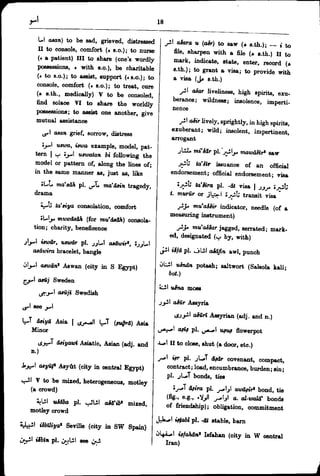 18
اسى
اسى asan) to be sad, grieved, distressed
II to console, comfort (ه s.o.); to nurse
(ه a patient) III to share (one's worldly
possessions, ه with s.o.), be charitable
(ه to s.o.); to assist, support (ه s.o.); to
console, comfort (ه s.o.); to treat, cure
(ه s.th., medically) V to be consoled,
find solace VI to share the worldly
possessions; to assist one another, give
mutual assistance
اسى asan grief, sorrow, distress
اسوة uswa, iswa example, model, pat-
tern | اسوة ب uswatan bi following the
model or pattern of, along the lines of;
in the same manner as, just as, like
مأساة ma'sāh pl. مآس ma'āsin tragedy,
drama
تأسية ta'siya consolation, comfort
مواساة muwāsāh (for mu'āsāh) consola-
tion; charity, beneficence
اسوار iswār, uswār pl. اساور asāwir², اساورة
asāwira bracelet, bangle
اسوان aswān² Aswan (city in S Egypt)
اسوج asūj Sweden
اسوجي asūjī Swedish
اسي see اسو
آسيا āsiyā Asia | آسيا الصغرى (ṣuḡrā) Asia
Minor
آسيوي āsiyawī Asiatic, Asian (adj. and
n.)
اسيوط asyūṭ² Asyūṭ (city in central Egypt)
اشب V to be mixed, heterogeneous, motley
(a crowd)
اشابة ušāba pl. اشائب ašā'ib² mixed,
motley crowd
اشبيلية išbīliya² Seville (city in SW Spain)
اشبين išbīn pl. اشابين see شبن
اشر ašara u (ašr) to saw (ه s.th.); — i to
file, sharpen with a file (ه s.th.) II to
mark, indicate, state, enter, record (ه
s.th.); to grant a visa; to provide with
a visa (على s.th.)
اشر ašar liveliness, high spirits, exu-
berance; wildness; insolence, imperti-
nence
اشر ašir lively, sprightly, in high spirits,
exuberant; wild; insolent, impertinent,
arrogant
مئشار mi'šār pl. مواشير mawāšīr² saw
تأشير ta'šīr issuance of an official
endorsement; official endorsement; visa
تأشيرة ta'šīra pl. -āt visa | تأشيرة مرور
t. murūr or تأشيرة اجتياز transit visa
مؤشر mu'aššir indicator, needle (of a
measuring instrument)
مؤشر mu'aššar jagged, serrated; mark-
ed, designated (ب by, with)
اشفى išfā pl. اشاف ašāfin awl, punch
اشنان ušnān potash; saltwort (Salsola kali;
bot.)
اشنة ušna moss
اشور ašūr Assyria
اشوري ašūrī Assyrian (adj. and n.)
اصيص aṣīṣ pl. اصص uṣuṣ flowerpot
اصد II to close, shut (a door, etc.)
اصر iṣr pl. آصار āṣār covenant, compact,
contract; load, encumbrance, burden; sin;
pl. آصار bonds, ties
آصرة āṣira pl. اواصر awāṣir² bond, tie
(fig., e.g., اواصر الولاء a. al-walā' bonds
of friendship); obligation, commitment
اصطبل iṣṭabl pl. -āt stable, barn
اصفهان iṣfahān² Isfahan (city in W central
Iran)